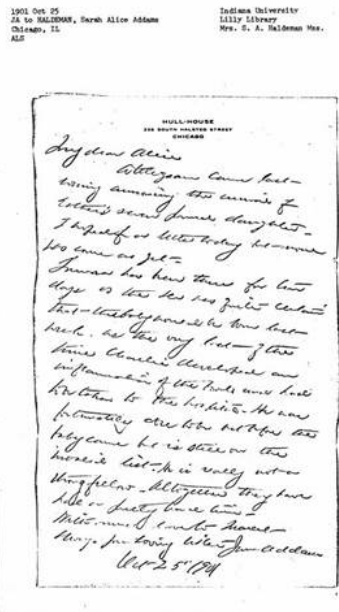 1901 Oct 25
JA to HALDEMAN, Sarah Alice Addams
Chicago, IL
ALS
Indiana University
Lilly Library
Mrs. S. A. Haldeman Mss.
HULL-HOUSE
335 SOUTH HALSTED STREET
CHICAGO
My dear Alice
A telegram came last
evening announcing the arrival of
daughter -
I hoped for a letter today but none
has come as yet -
has been there for two
days as the
that the baby would be born last
week. at the very last of the
time Charlie developed an
inflammation of the and had
to be taken to the hospital. He was
fortunately able to be out before the
baby came but is still on the
invalid list. He is really not a
strong fellow - Altogether they have
had a pretty hard time -
With much love to
always your loving sister Jane Addams
Oct 25" 1901